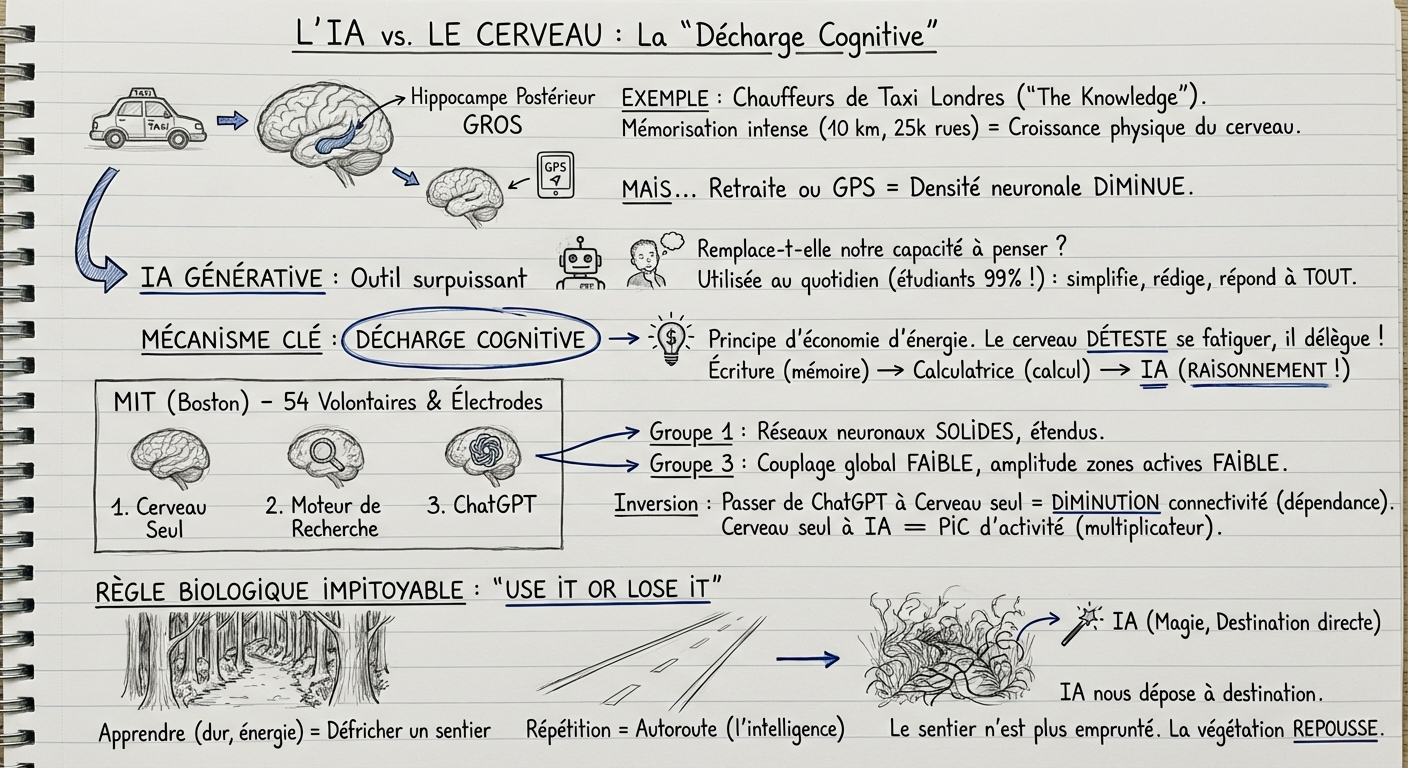 L'IA vs. LE CERVEAU : La "Décharge Cognitive"
TAXI
TAXI
Hippocampe Postérieur
GROS
EXEMPLE : Chauffeurs de Taxi Londres ("The Knowledge").
Mémorisation intense (10 km, 25k rues) = Croissance physique du cerveau.
GPS
MAIS... Retraite ou GPS = Densité neuronale DIMINUE.
IA GÉNÉRATIVE : Outil surpuissant
Remplace-t-elle notre capacité à penser ?
Utilisée au quotidien (étudiants 99% !) : simplifie, rédige, répond à TOUT.
MÉCANISME CLÉ : DÉCHARGE COGNITIVE
$
Principe d'économie d'énergie. Le cerveau DÉTESTE se fatiguer, il délègue !
Écriture (mémoire) → Calculatrice (calcul) → IA (RAISONNEMENT !)
MIT (Boston) – 54 Volontaires & Électrodes
1. Cerveau
Seul
2. Moteur de
Recherche
3. ChatGPT
Groupe 1 : Réseaux neuronaux SOLIDES, étendus.
Groupe 3 : Couplage global FAIBLE, amplitude zones actives FAIBLE.
Inversion : Passer de ChatGPT à Cerveau seul = DIMINUTION connectivité (dépendance).
Cerveau seul à IA = PIC d'activité (multiplicateur).
RÈGLE BIOLOGIQUE IMPITOYABLE : "USE IT OR LOSE IT"
IA (Magie, Destination directe)
IA nous dépose à destination.
Apprendre (dur, énergie) = Défricher un sentier
Répétition = Autoroute (l'intelligence)
Le sentier n'est plus emprunté. La végétation REPOUSSE.